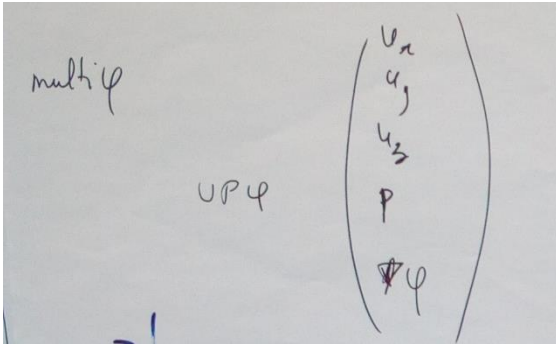 multiφ
UPφ
u_x
u_y
u_z
p
φ